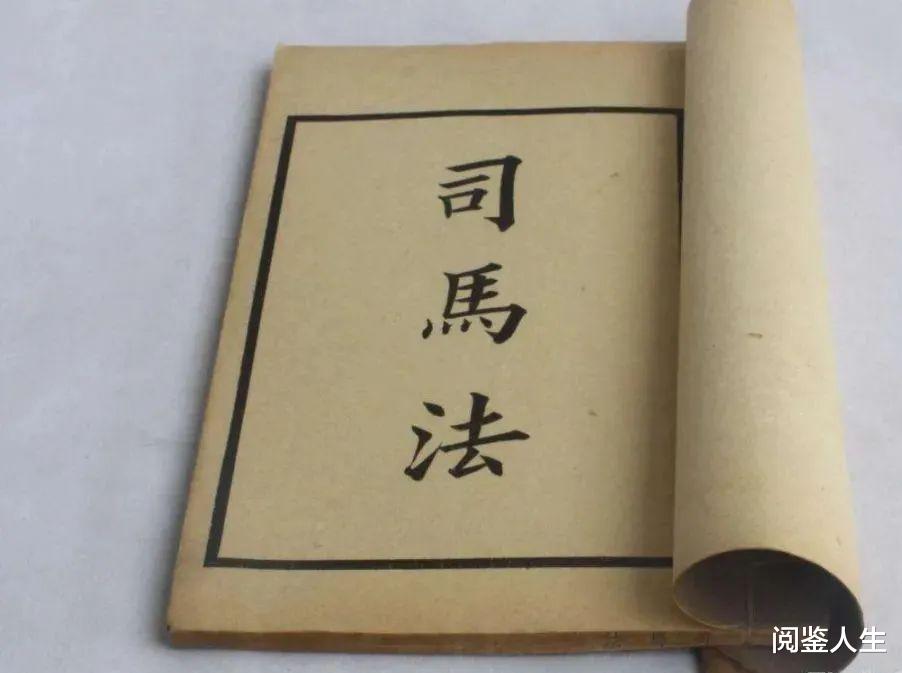 司馬法
阅鉴人生